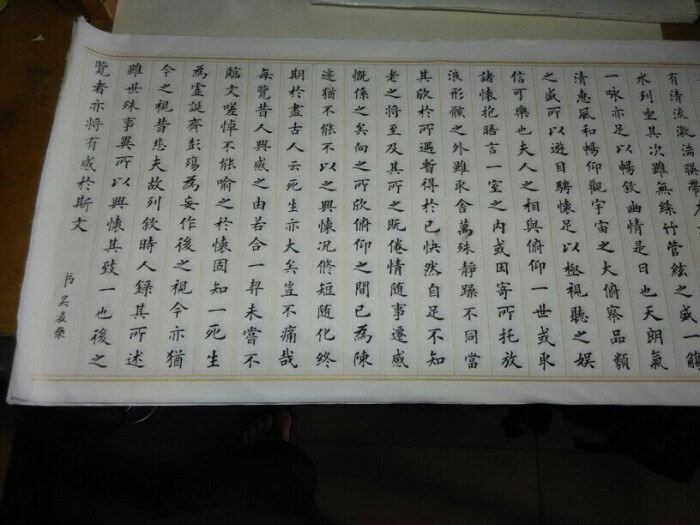 有清流激湍映帶
水列坐其次雖無絲竹管絃之盛一觴
一咏亦足以暢敘幽情是日也天朗氣
清惠風和暢仰觀宇宙之大俯察品類
之盛所以遊目騁懷足以極視聽之娛
信可樂也夫人之相與俯仰一世或取
諸懷抱晤言一室之內或因寄所托放
浪形骸之外雖取舍萬殊靜躁不同當
其欣於所遇暫得於己快然自足不知
老之將至及其所之既倦情隨事遷感
慨係之矣向之所欣俯仰之間已為陳
迹猶不能不以之興懷況修短隨化終
期於盡古人云死生亦大矣豈不痛哉
每覽昔人興感之由若合一契未嘗不
臨文嗟悼不能喻之於懷固知一死生
為虛誕齊彭殤為妄作後之視今亦猶
今之視昔悲夫故列敘時人錄其所述
雖世殊事異所以興懷其致一也後之
覽者亦將有感於斯文